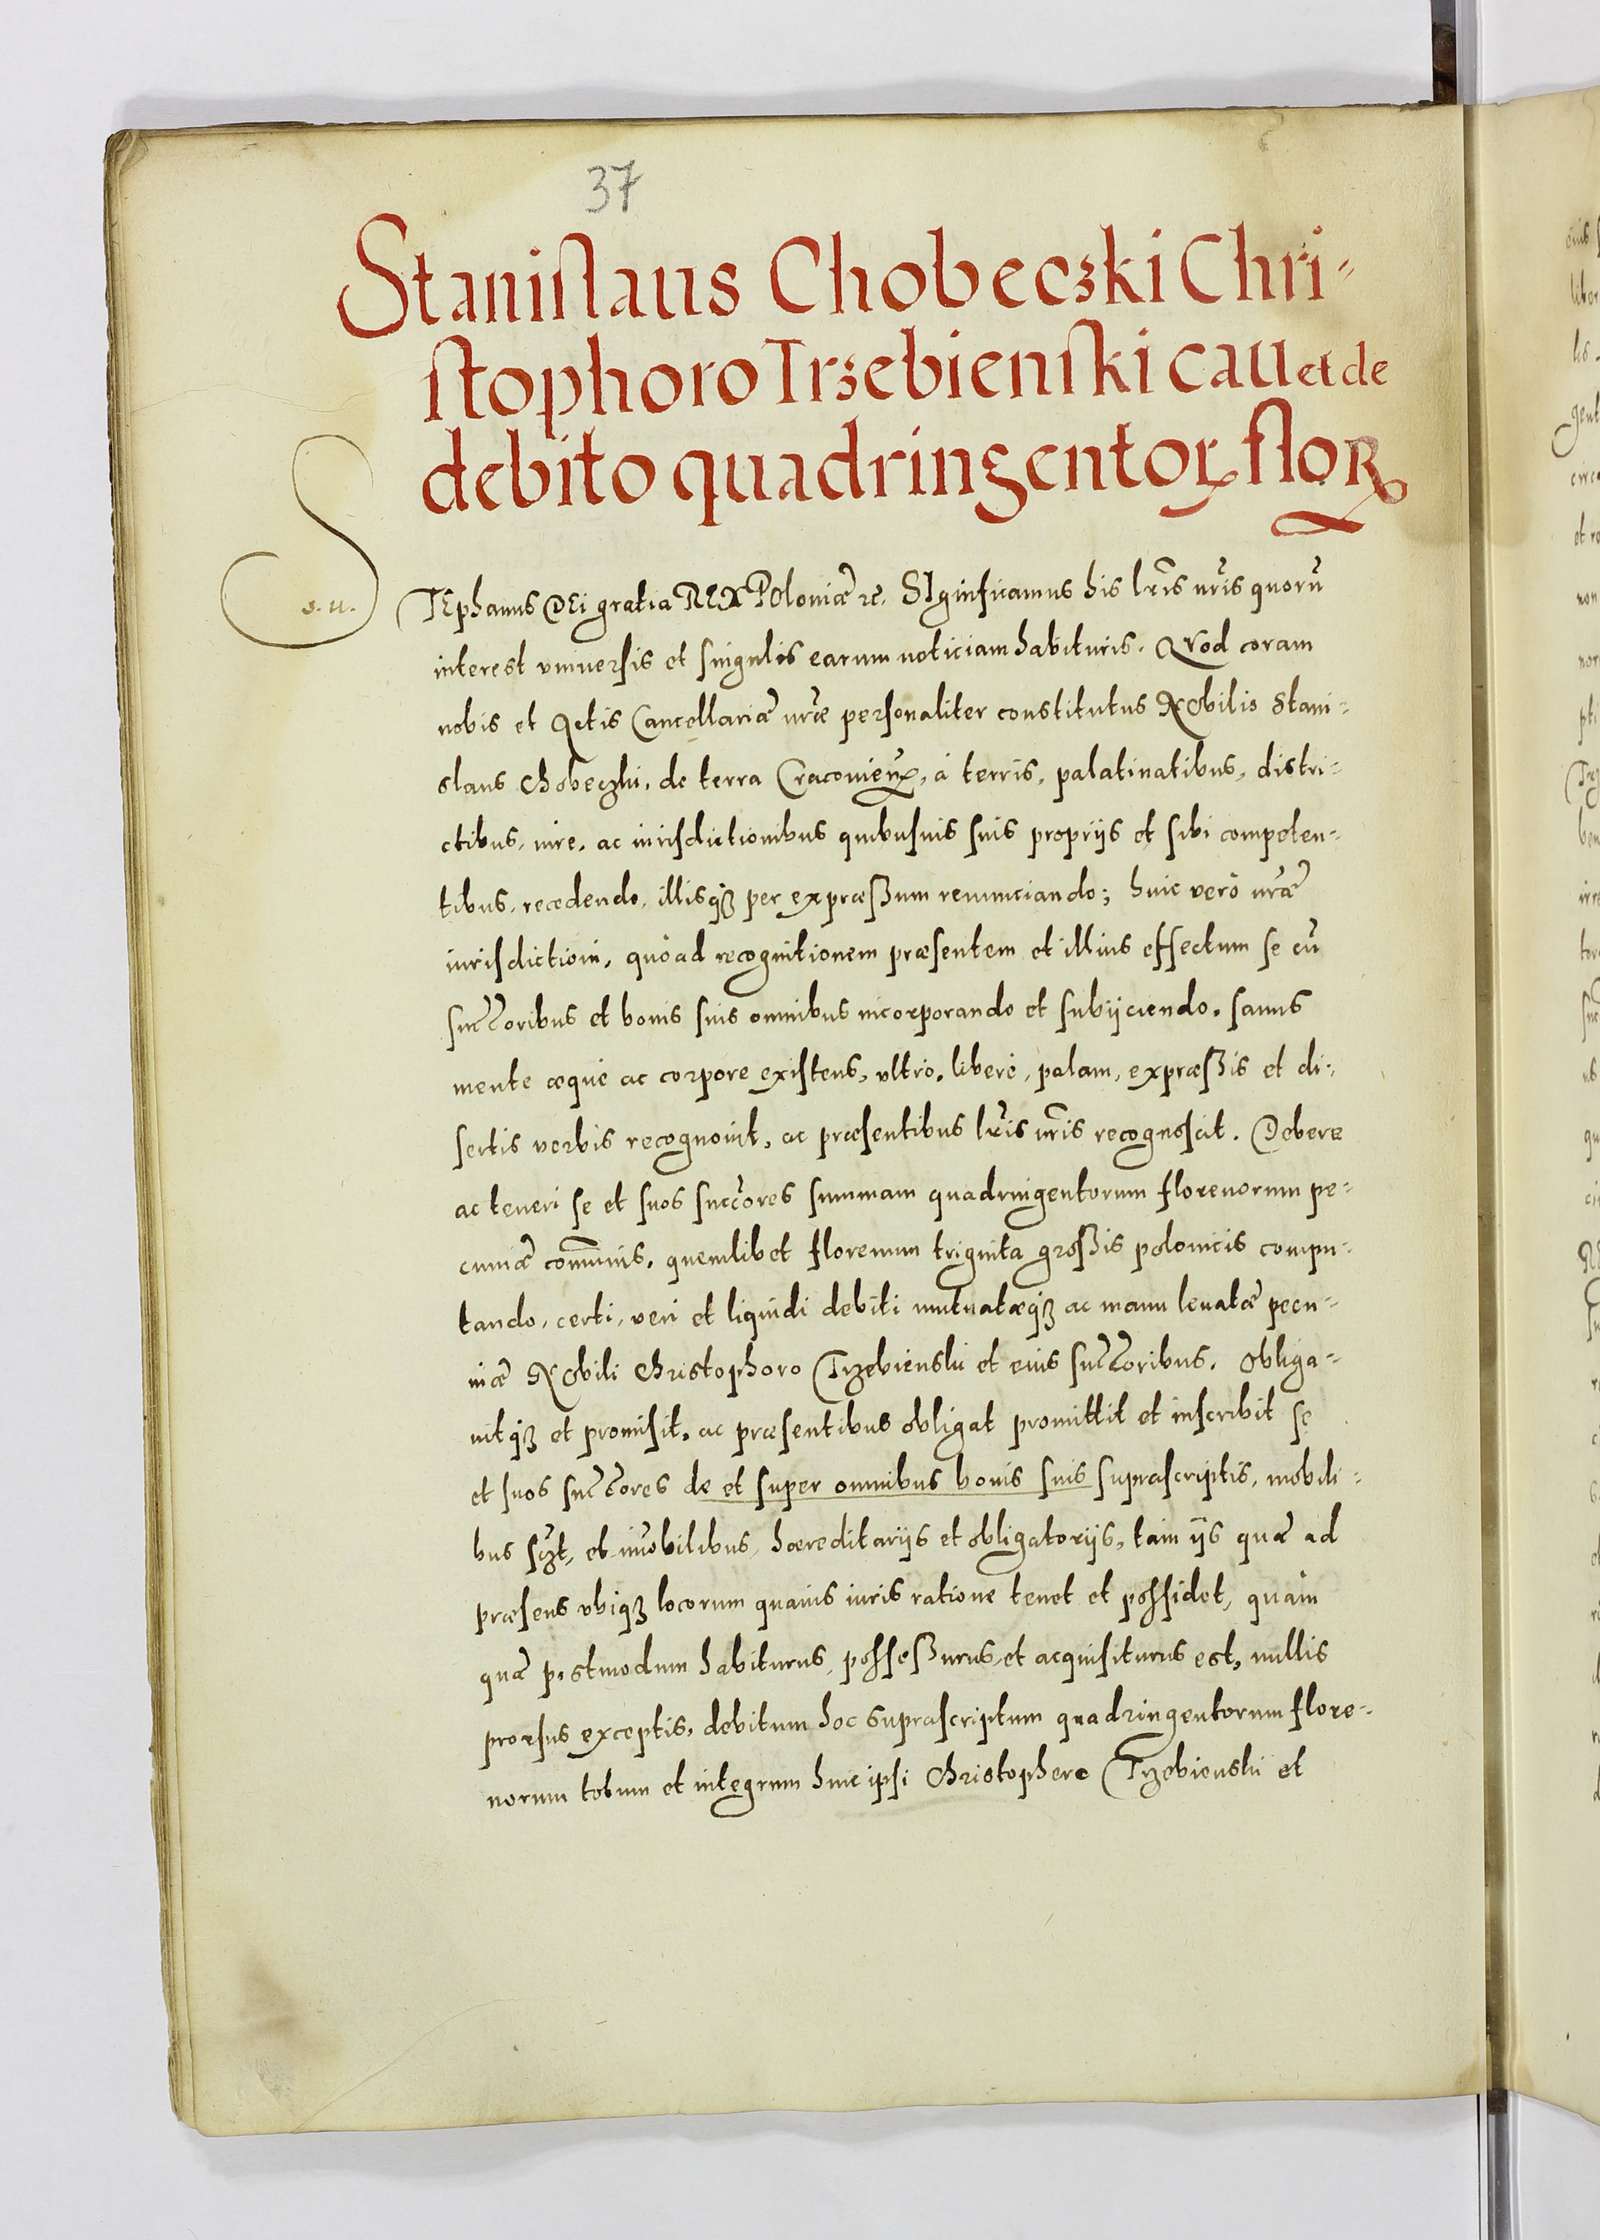 37
Stanislaus Chobeczki Chri-
stophoro Trzebienski cauet de
debito quadringentoꝝ floꝝ
S
s. u.
TEphanus DEi gratia REX Poloniæ ꝛc. SIgnificamus his lr̃is nr̃is quorũ
interest vniuersis et singulis earum noticiam habituris. QVod coram
nobis et Actis Cancellariæ nr̃æ personaliter constitutus NObilis Stani-
slaus Chobeczki, de terra Cracovieñ, à terris, palatinatibus, distri-
ctibus, iure, ac iurisdictionibus quibusuis suis proprijs et sibi competen-
tibus, recedendo, illisqꝫ per expræßum renunciando; huic verò nr̃æ
iurisdictioni, quò ad recognitionem præsentem et illius effectum se cũ
succ̃oribus et bonis suis omnibus incorporando et subijciendo. sanus
mente æquè ac corpore existens, vltrò, liberè, palam, expræßis et di-
sertis verbis recognouit, ac præsentibus lr̃is nr̃is recognoscit. Debere
ac teneri se et suos succ̃ores summam quadringentorum florenorum pe-
cuniæ com̃unis, quemlibet florenum triginta großis polonicis compu-
tando, certi, veri et liquidi debiti mutuatæqꝫ ac manu leuatæ pecu-
niæ NObili Christophoro Trzebienski et eius succ̃oribus. Obliga-
uitqꝫ et promisit, ac præsentibus obligat promittit et inscribit se
et suos succ̃ores de et super omnibus bonis suis suprascriptis, mobili-
bus sc̃zt, et im̃obilibus, hæreditarijs et obligatorijs, tam ijs quæ ad
præsens vbiqꝫ locorum quauis iuris ratione tenet et possidet, quàm
quæ postmodum habiturus, posseßurus, et acquisiturus est, nullis
prorsus exceptis, debitum hoc suprascriptum quadringentorum flore-
norum totum et integrum huic ipsi Christophero Trzebienski et